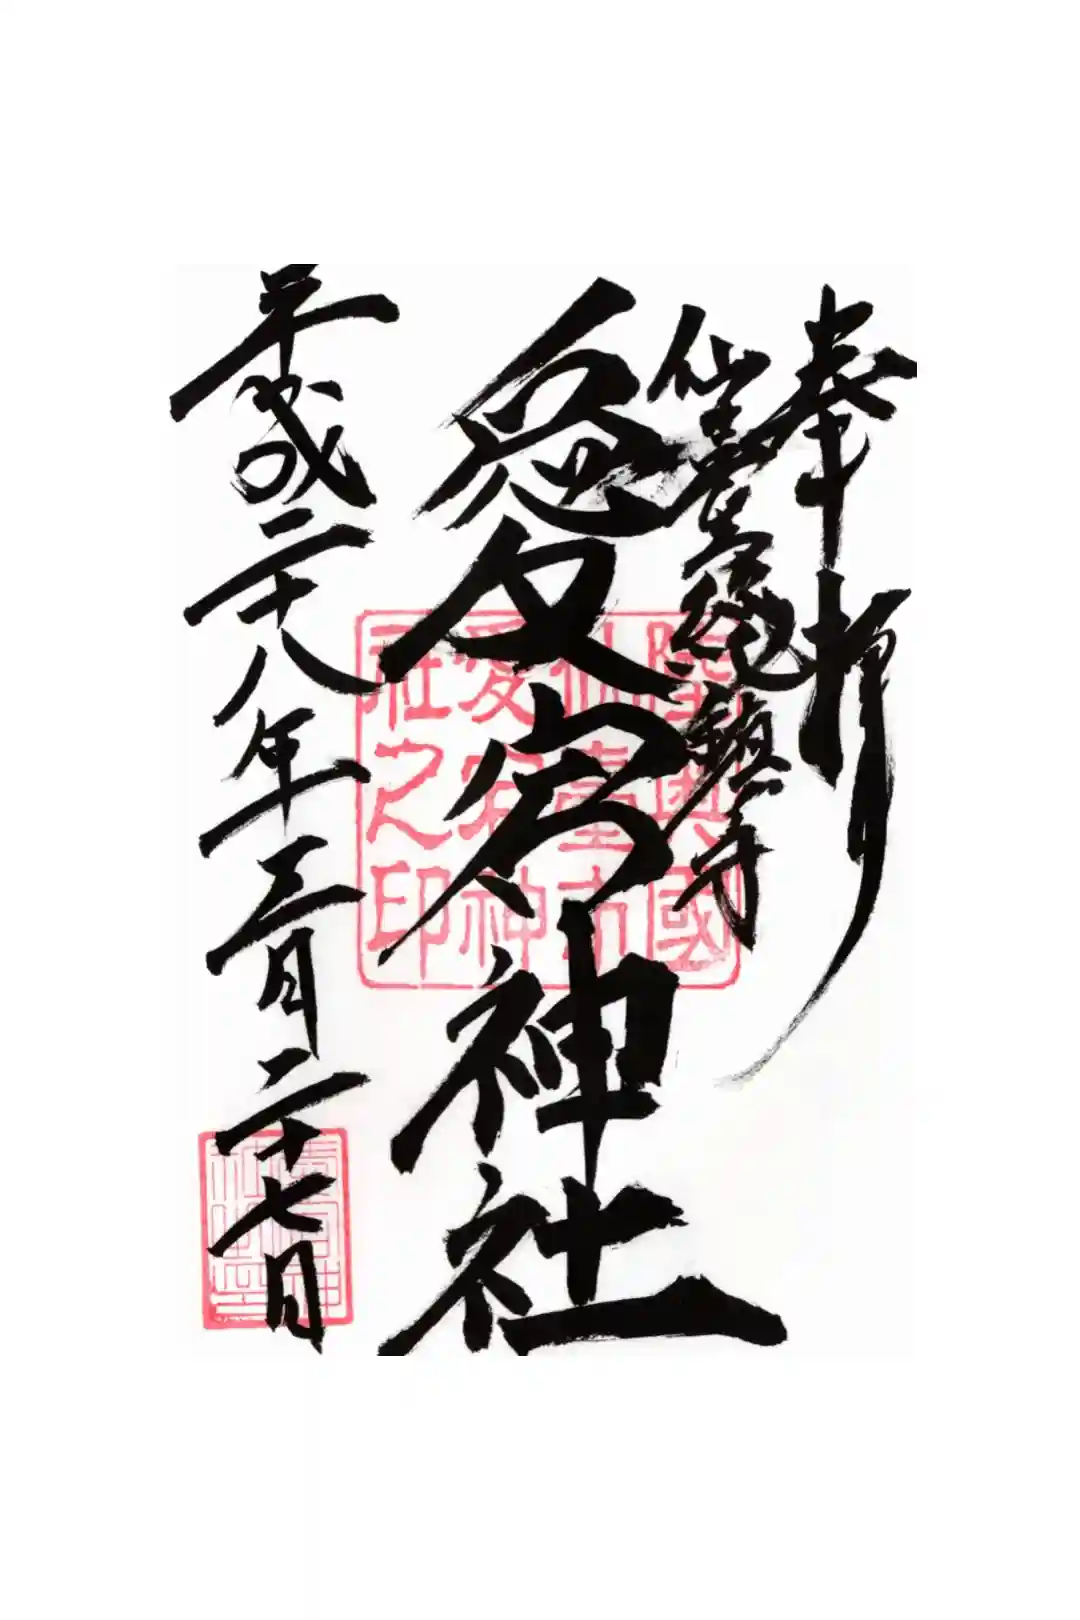 奉拝
仙臺総鎮守
愛宕神社
平成二十八年三月二十七日
陸奥國
仙臺市
愛宕神
社之印